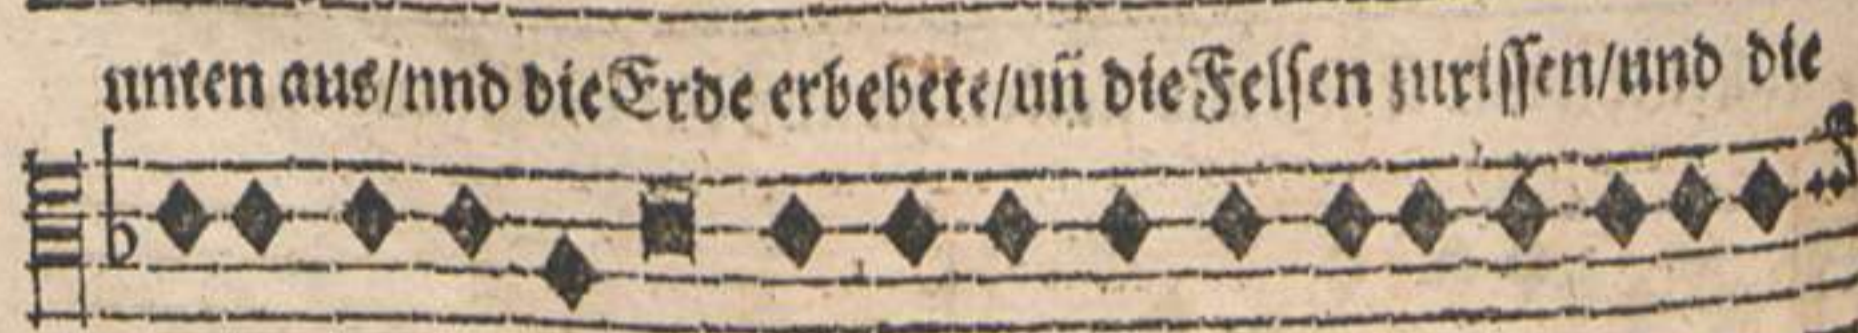 unten aus/nnd die Erde erbebete/uñ die Felſen zuriſſen/und die